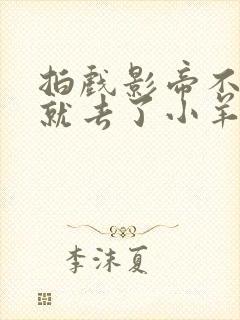 拍戏影帝不
就去了小羊
李沫夏